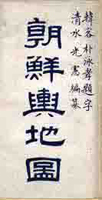 韓客朴泳孝題字
清水光憲編纂
朝鮮輿地圖